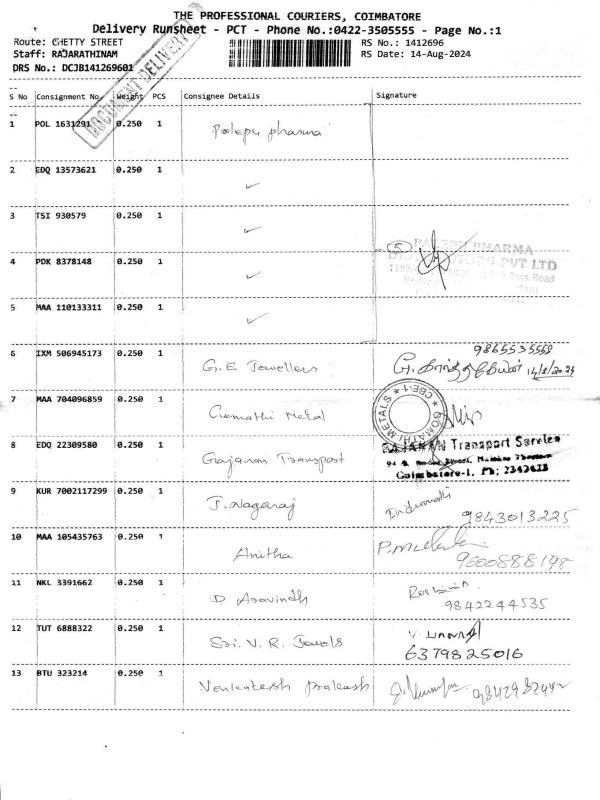 THE PROFESSIONAL COURIERS, COIMBATORE
Delivery Runsheet - PCT - Phone No.:0422-3505555 - Page No.:1
Route: CHETTY STREET RS No.: 1412696
Staff: RAJARATHINAM RS Date: 14-Aug-2024
DRS No.: DCJB141269601
DOCUMENT DELIVERY
S No Consignment No. Weight PCS Consignee Details Signature
1 POL 1631291 0.250 1 Polepu pharma
2 EDQ 13573621 0.250 1 ✓
3 TSI 930579 0.250 1 ✓
5 PHARMA
PVT LTD
4 PDK 8378148 0.250 1 ✓
Road
5 MAA 110133311 0.250 1 ✓
6 IXM 506945173 0.250 1 G.E Jewellers 9865535559
14/8/2024
7 MAA 704096859 0.250 1 Gomathi Metal
GOMATHI METALS * CBE-1 *
8 EDQ 22309580 0.250 1 Gajanan Transport
GAJANAN Transport Service
Coimbatore-1. Ph: 2342423
9 KUR 7002117299 0.250 1 J. Nagaraj Indumathi
9843013225
10 MAA 105435763 0.250 1 Anitha
9600888198
11 NKL 3391662 0.250 1 D Aravindh
9842244535
12 TUT 6888322 0.250 1 Sri. V. R. Jewels
6379825016
13 BTU 323214 0.250 1 Venkatesh prakash